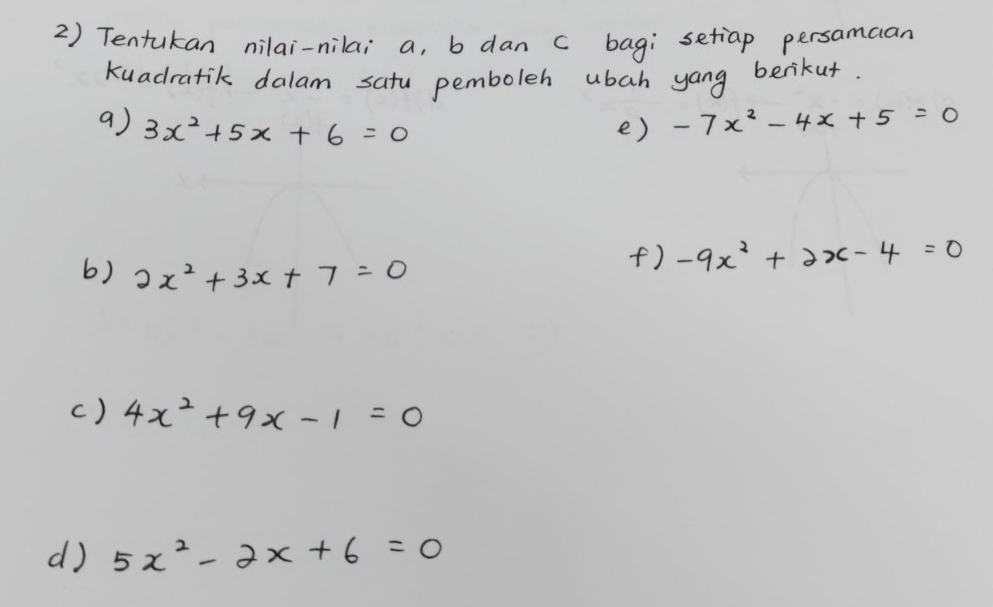 2) Tentukan nilai-nilai a, b dan c bagi setiap persamaan
kuadratik dalam satu pemboleh ubah yang berikut.
a) 3x² + 5x + 6 = 0
e) -7x² - 4x + 5 = 0
b) 2x² + 3x + 7 = 0
f) -9x² + 2x - 4 = 0
c) 4x² + 9x - 1 = 0
d) 5x² - 2x + 6 = 0